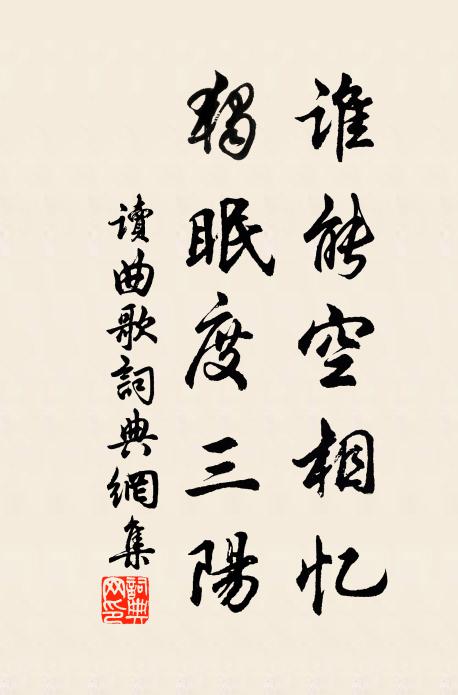 誰能空相忆
獨眠度三陽
讀曲歌詞典網集
詞典网印